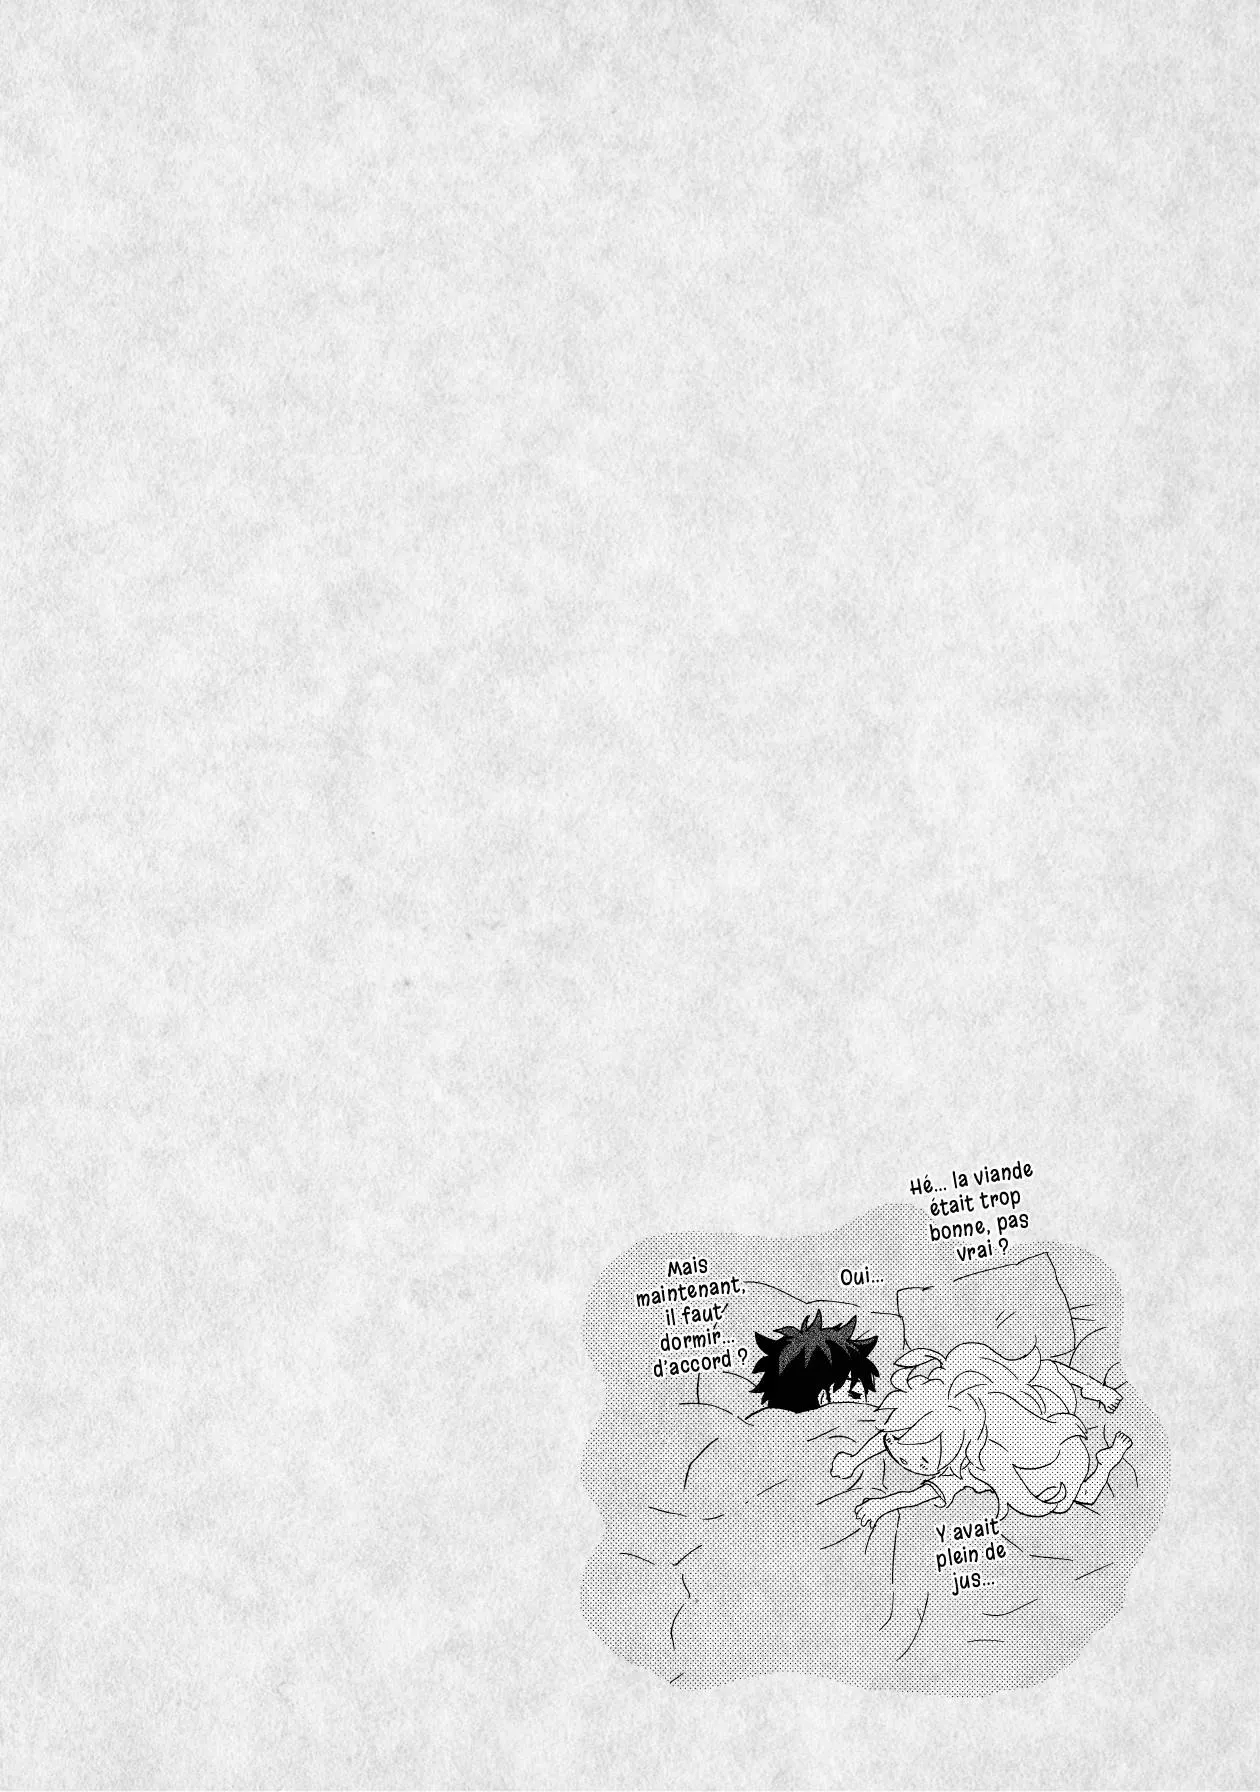 Hé... la viande
était trop
bonne, pas
vrai ?
Oui...
Mais
maintenant,
il faut
dormir...
d'accord ?
Y avait
plein de
jus...